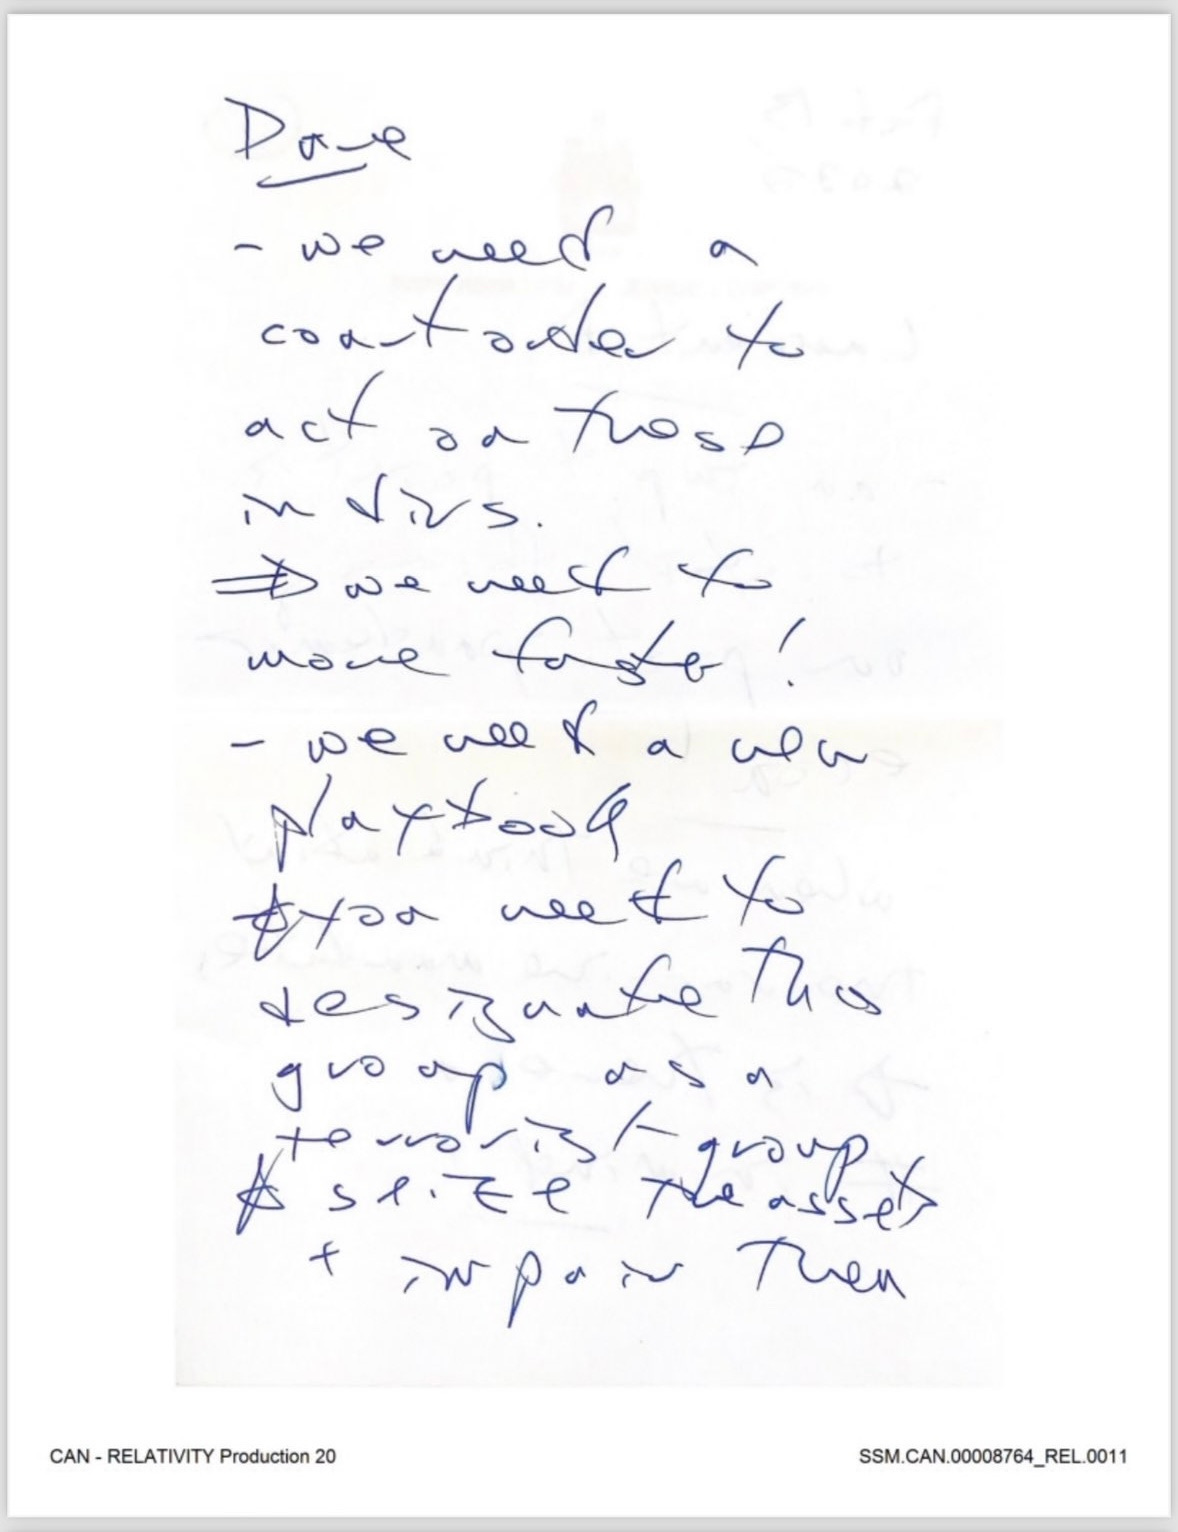 Dave
- we need a
court order to
act on these
indivs.
⇒ we need to
move faster!
- we need a new
playbook
☆ you need to
designate this
group as a
terrorist group
☆ seize the assets
+ impair them
CAN - RELATIVITY Production 20
SSM.CAN.00008764_REL.0011